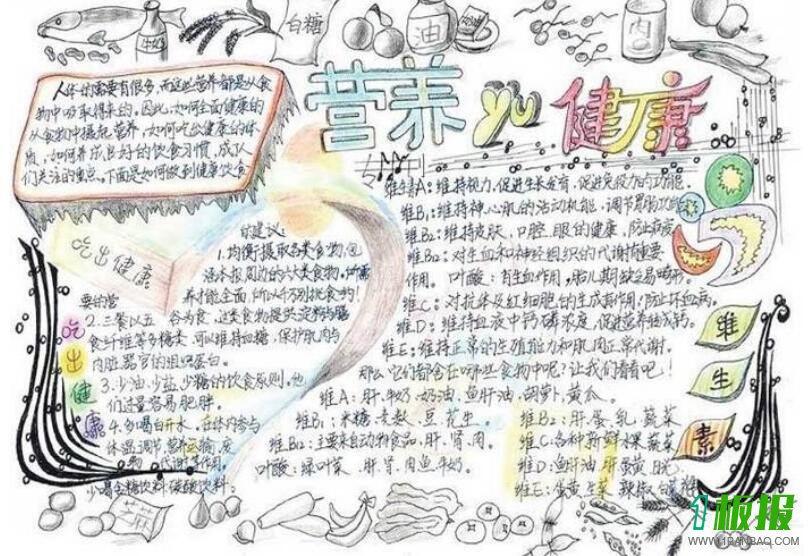 白糖
油
奶油
肉
营养 yu 健康
人体的需要有很多,而这些营养都是从食
物中吸取得来的。因此,如何全面健康的
从食物中摄起营养,如何吃出健康的体
质,如何养成良好的饮食习惯,成了人
们关注的重点。下面是如何做到健康饮食
的建议:
吃出健康
1.均衡摄取各类食物,包
涵本报周边的六大类食物,
养才能全面,所以千万别挑食哟!
要的营
2.三餐以五谷为食,这类食物提供淀粉与膳
食纤维等多糖类,可以维持血糖,保护肌肉与
内脏器官的组织蛋白。
3.少油、少盐、少糖的饮食原则。他
们过量容易肥胖。
4.多喝白开水,在体内参与
体温调节,营养运输,废
物代谢等作用。
少喝含糖饮料碳酸饮料。
吃出健康
维生素A:维持视力,促进生长发育,促进免疫力的功能。
维B₁:维持神心肌的活动机能,调节胃肠功能
维B₂:维持皮肤,口腔,眼的健康,防止
维B₁₂:对生血和神经组织的代谢有重要
作用。叶酸:有生血作用,胎儿期缺乏易畸形。
维C:对抗体及红细胞的生成有作用,防止坏血病。
维D:维持血液中钙磷浓度,促进营养组成钙。
维E:维持正常的生殖能力和肌肉正常代谢。
那么它们都含在哪些食物中呢?让我们看看吧!
维A:肝.牛奶.奶油.鱼肝油.胡萝卜.黄瓜。
维B₁:米糠.麦麸.豆.花生。
维B₂:肝.蛋.乳.蔬菜
维B₁₂:主要来自动物食品,肝.肾.肉。
维C:各种新鲜水果蔬菜
叶酸:绿叶菜.肝.肾.肉鱼.牛奶。
维D:鱼肝油.肝蛋黄.日光。
维E:蛋黄.生菜.辣椒
维生素
板报
WWW.1BANBAO.COM